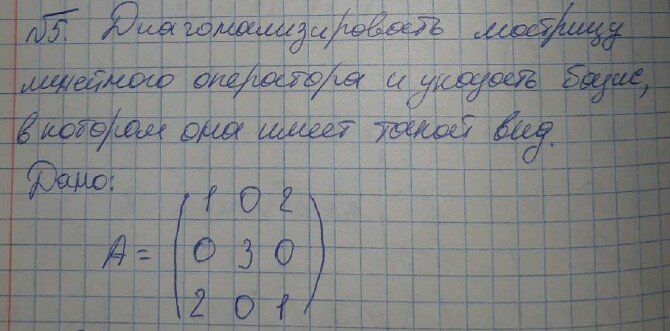 №5. Диагонализировать матрицу
линейного оператора и указать базис,
в котором она имеет такой вид.
Дано:
1 0 2
A = 0 3 0
2 0 1